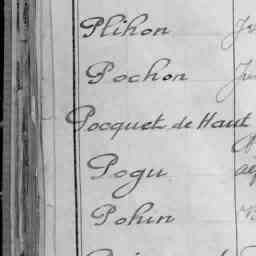 Plihon
Pochon
Pocquet de Haut
Pogu
Pohin